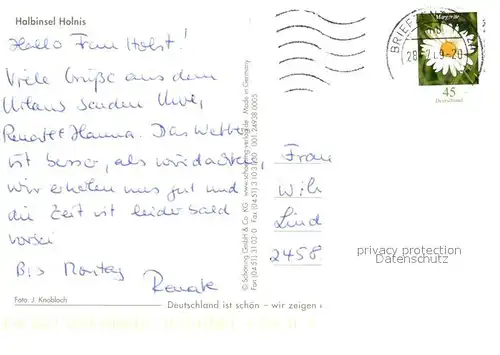 Halbinsel Holnis
Hallo Frau Holst!
Viele Grüße aus dem
Urlaub senden Ihnen
Renate + Hanna. Das Wetter
ist besser, als wir dachten,
wir erholen uns gut und
die Zeit ist leider bald
vorbei
Bis Montag
Renate
Foto: J. Knobloch
© Schöning GmbH & Co. KG · www.schoening-verlag.de · Made in Germany
Fax (04 51) 31 03-0 · Fax (04 51) 3 10 31 30 · 001 24938 0005
Margerite
45
Deutschland
BRIEF
Frau
Wil
Lind
2458
privacy protection
Datenschutz
Deutschland ist schön – wir zeigen